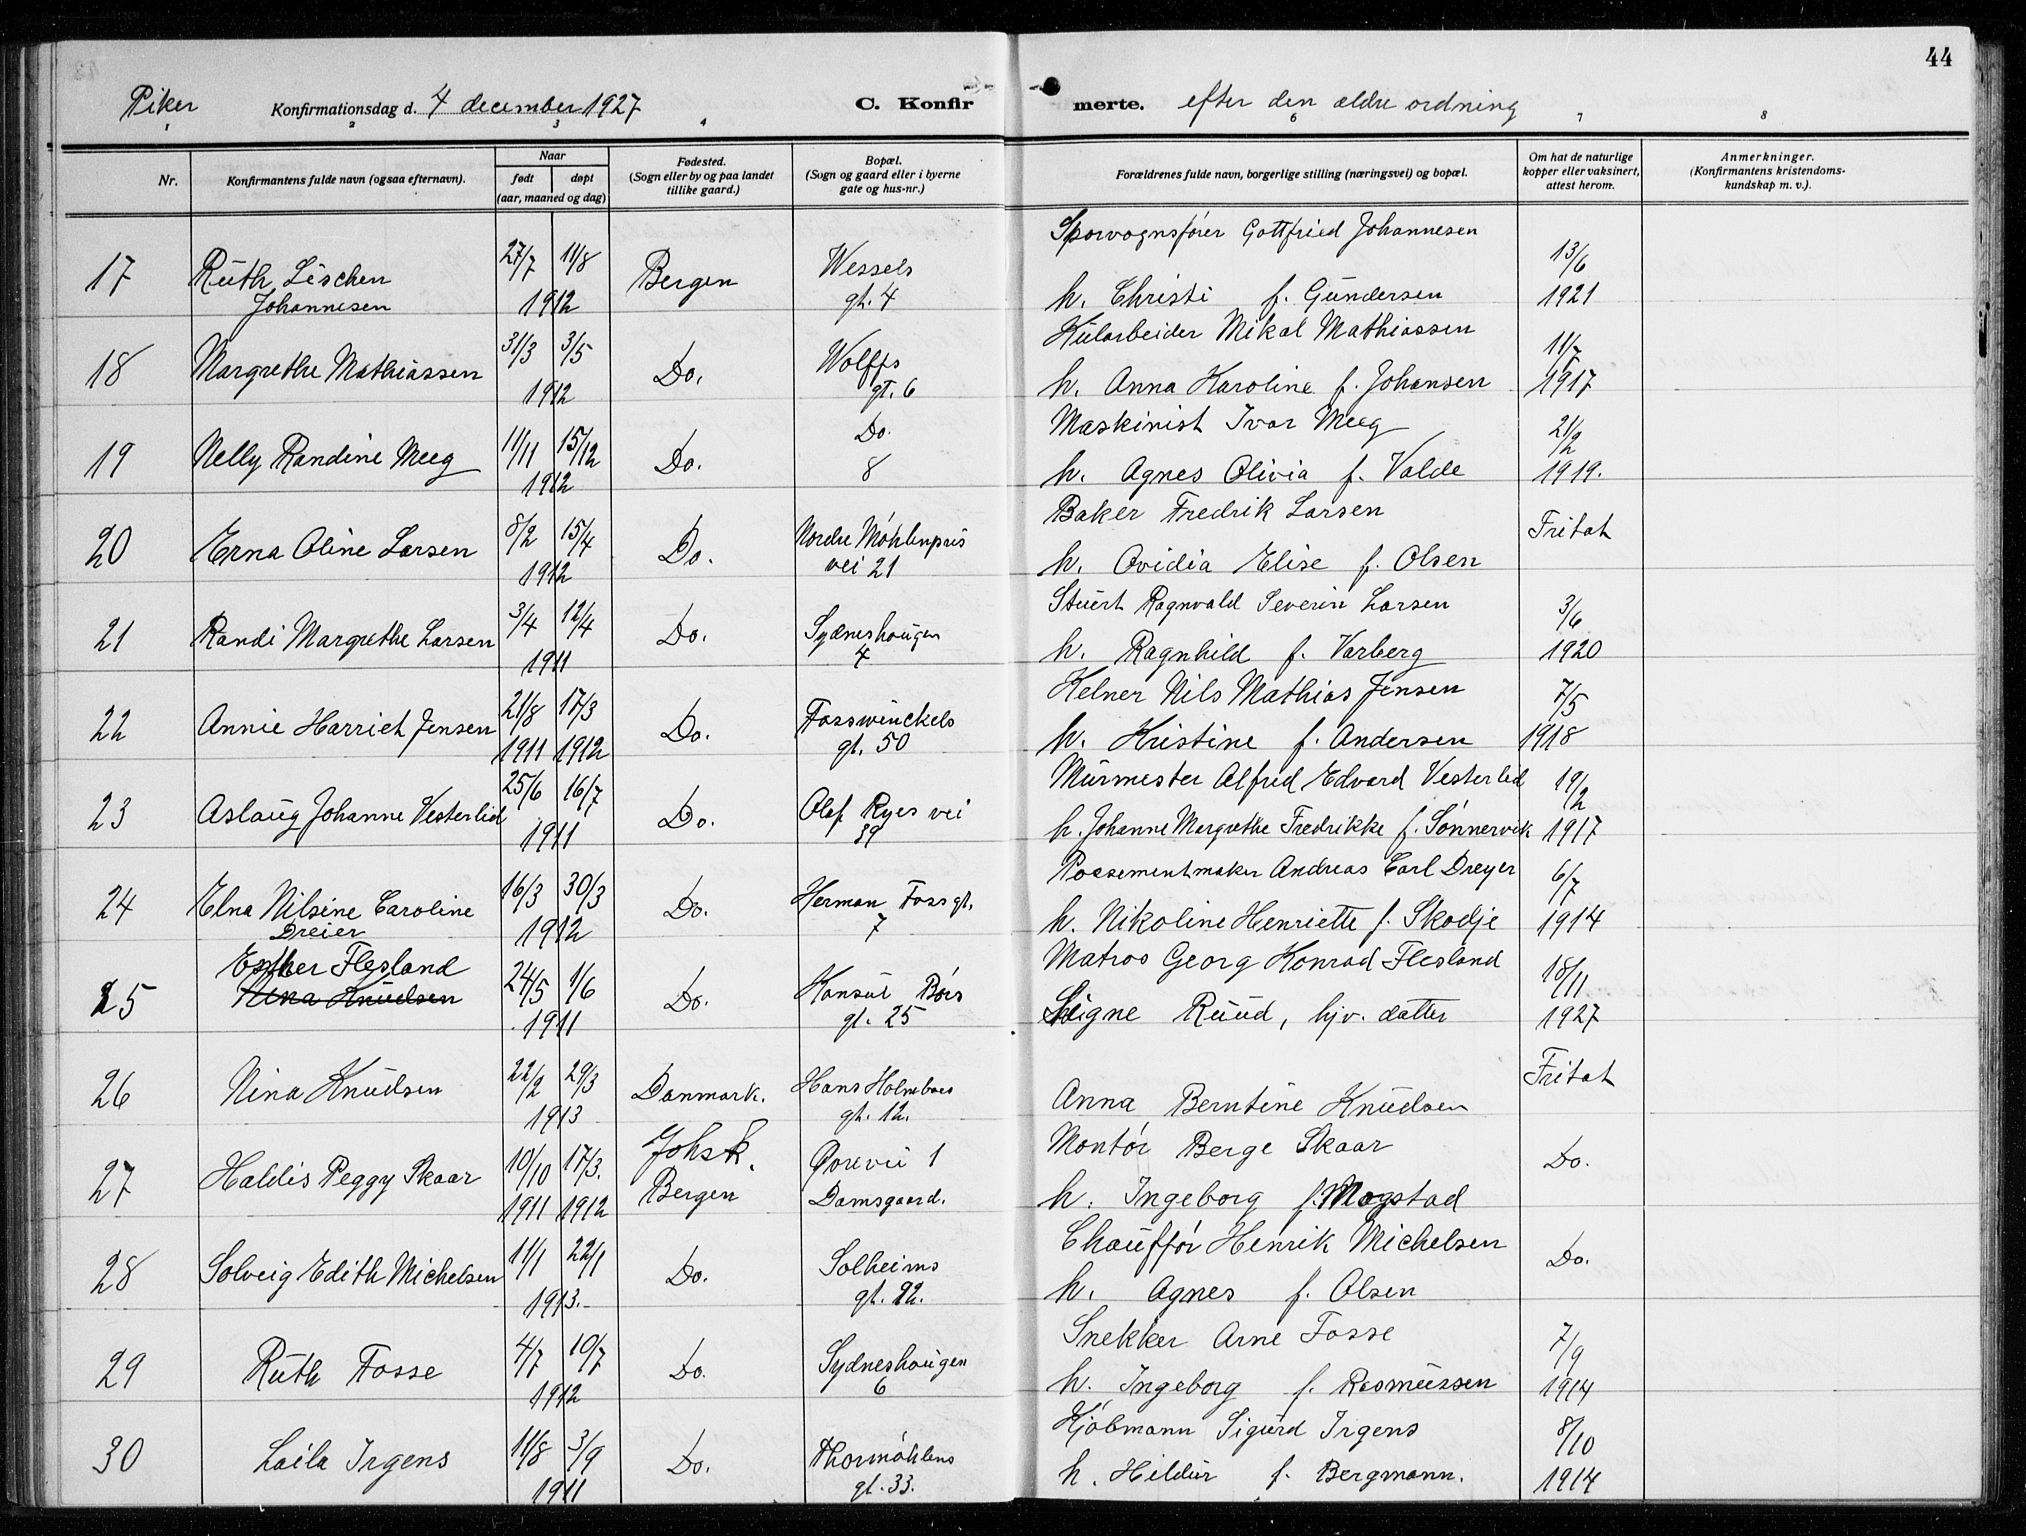 44
Piker Konfirmationsdag d. 4 december 1927 C. Konfir merte. efter den ældre ordning
1 2 3 4 6 7 8
Nr. Konfirmantens fulde navn (ogsaa efternavn). Naar født døpt (aar, maaned og dag) Fødested. (Sogn eller by og paa landet tillike gaard.) Bopæl. (Sogn og gaard eller i byerne gate og hus-nr.) Forældrenes fulde navn, borgerlige stilling (næringsvei) og bopæl. Om hat de naturlige kopper eller vaksinert, attest herom. Anmerkninger. (Konfirmantens kristendoms-kundskap m. v.).
Sporvognsfører Gottfried Johannesen
17 Ruth Lischen 27/7 11/8 Bergen Wessels 13/6
Johannesen 1912 gt. 4 h. Christi f. Gundersen 1921
Kularbeider Mikal Mathiassen
18 Margrethe Mathiassen 31/3 3/5 Do. Wolffs 11/7
1912 gt. 6 h. Anna Karoline f. Johansen 1917
Maskinist Ivar Meeg
19 Nelly Randine Meeg 11/11 15/12 Do. Do. 21/2
1912 8 h. Agnes Olivia f. Valde 1919.
Baker Fredrik Larsen
20 Erna Oline Larsen 8/2 15/4 Do. Nordre Møhlenpris Fritat
1912 vei 21 h. Ovidia Elise f. Olsen
Stuert Ragnvald Severin Larsen
21 Randi Margrethe Larsen 3/4 12/4 Do. Sydneshaugen 3/6
1911 4 h. Ragnhild f. Varberg 1920
Kelner Nils Mathias Jensen
22 Annie Harriet Jensen 21/8 17/3 Do. Fosswinckels 7/5
1911 1912 gt. 50 h. Kristine f. Andersen 1918
Murmester Alfred Edvard Vesterlid
23 Aslaug Johanne Vesterlid 25/6 16/7 Do. Olaf Ryes vei 19/2
1911 39 h. Johanne Margrethe Fredrikke f. Sønnervik 1917
Possementmaker Andreas Carl Dreyer
24 Elna Nilsine Caroline 16/3 30/3 Do. Herman Foss gt. 6/7
Dreier 1912 7 h. Nikoline Henriette f. Skodje 1914
Esther Flesland Matros Georg Konrad Flesland
25 Nina Knudsen 24/5 1/6 Do. Konsul Børs 18/11
1911 gt. 25 Signe Ruud, hjv. datter 1927
26 Nina Knudsen 22/2 29/3 Danmark. Hans Holmboes Fritat
1913 gt. 12. Anna Berntine Knudsen
Johsk. Montør Berge Skaar
27 Haldis Peggy Skaar 10/10 17/3. Bergen Øorevei 1 Do.
1911 1912 Damsgaard. h. Ingeborg f. Mogstad
Chauffør Henrik Michelsen
28 Solveig Edith Michelsen 11/1 22/1 Do. Solheims Do.
1913. gt. 22. h. Agnes f. Olsen
Snekker Arne Fosse
29 Ruth Fosse 4/7 10/7 Do. Sydneshaugen 7/9
1912 6 h. Ingeborg f. Rasmussen 1914
Kjøbmann Sigurd Irgens
30 Laila Irgens 11/8 3/9 Do. Thormøhlens 8/10
1911 gt. 33. h. Hildur f. Bergmann. 1914